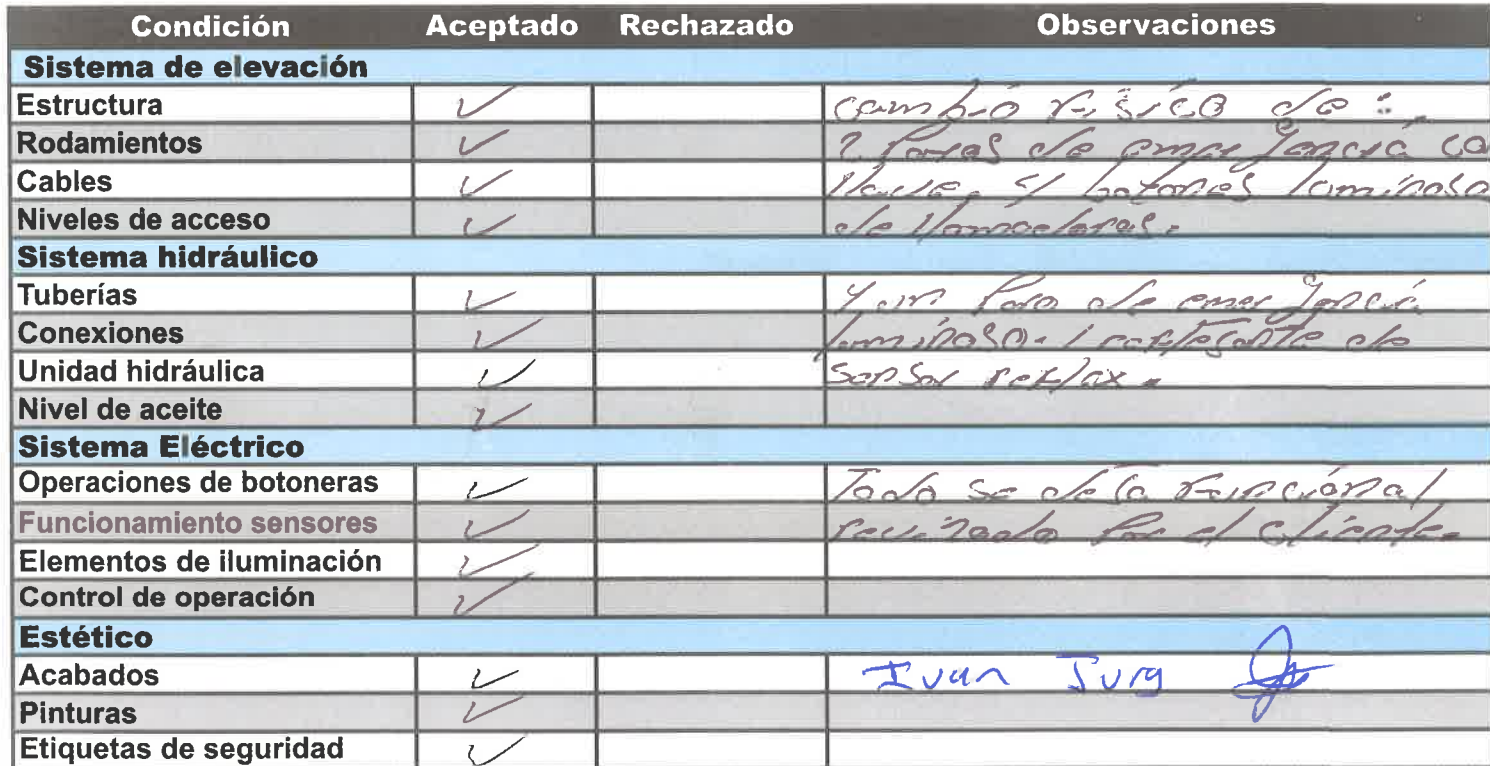 Condición Aceptado Rechazado Observaciones
Sistema de elevación
Estructura ✓ cambio físico de :
Rodamientos ✓ 2 Paros de emergencia co
Cables ✓ llave. 5/ botones luminoso
Niveles de acceso ✓ de llamadoras.
Sistema hidráulico
Tuberías ✓ y un Paro de emergencia
Conexiones ✓ luminoso. 1 de
Unidad hidráulica ✓ Sensor reflex.
Nivel de aceite ✓
Sistema Eléctrico
Operaciones de botoneras ✓ Todo se deja funcional
Funcionamiento sensores ✓ Por el cliente.
Elementos de iluminación ✓
Control de operación ✓
Estético
Acabados ✓ Ivan
Pinturas ✓
Etiquetas de seguridad ✓